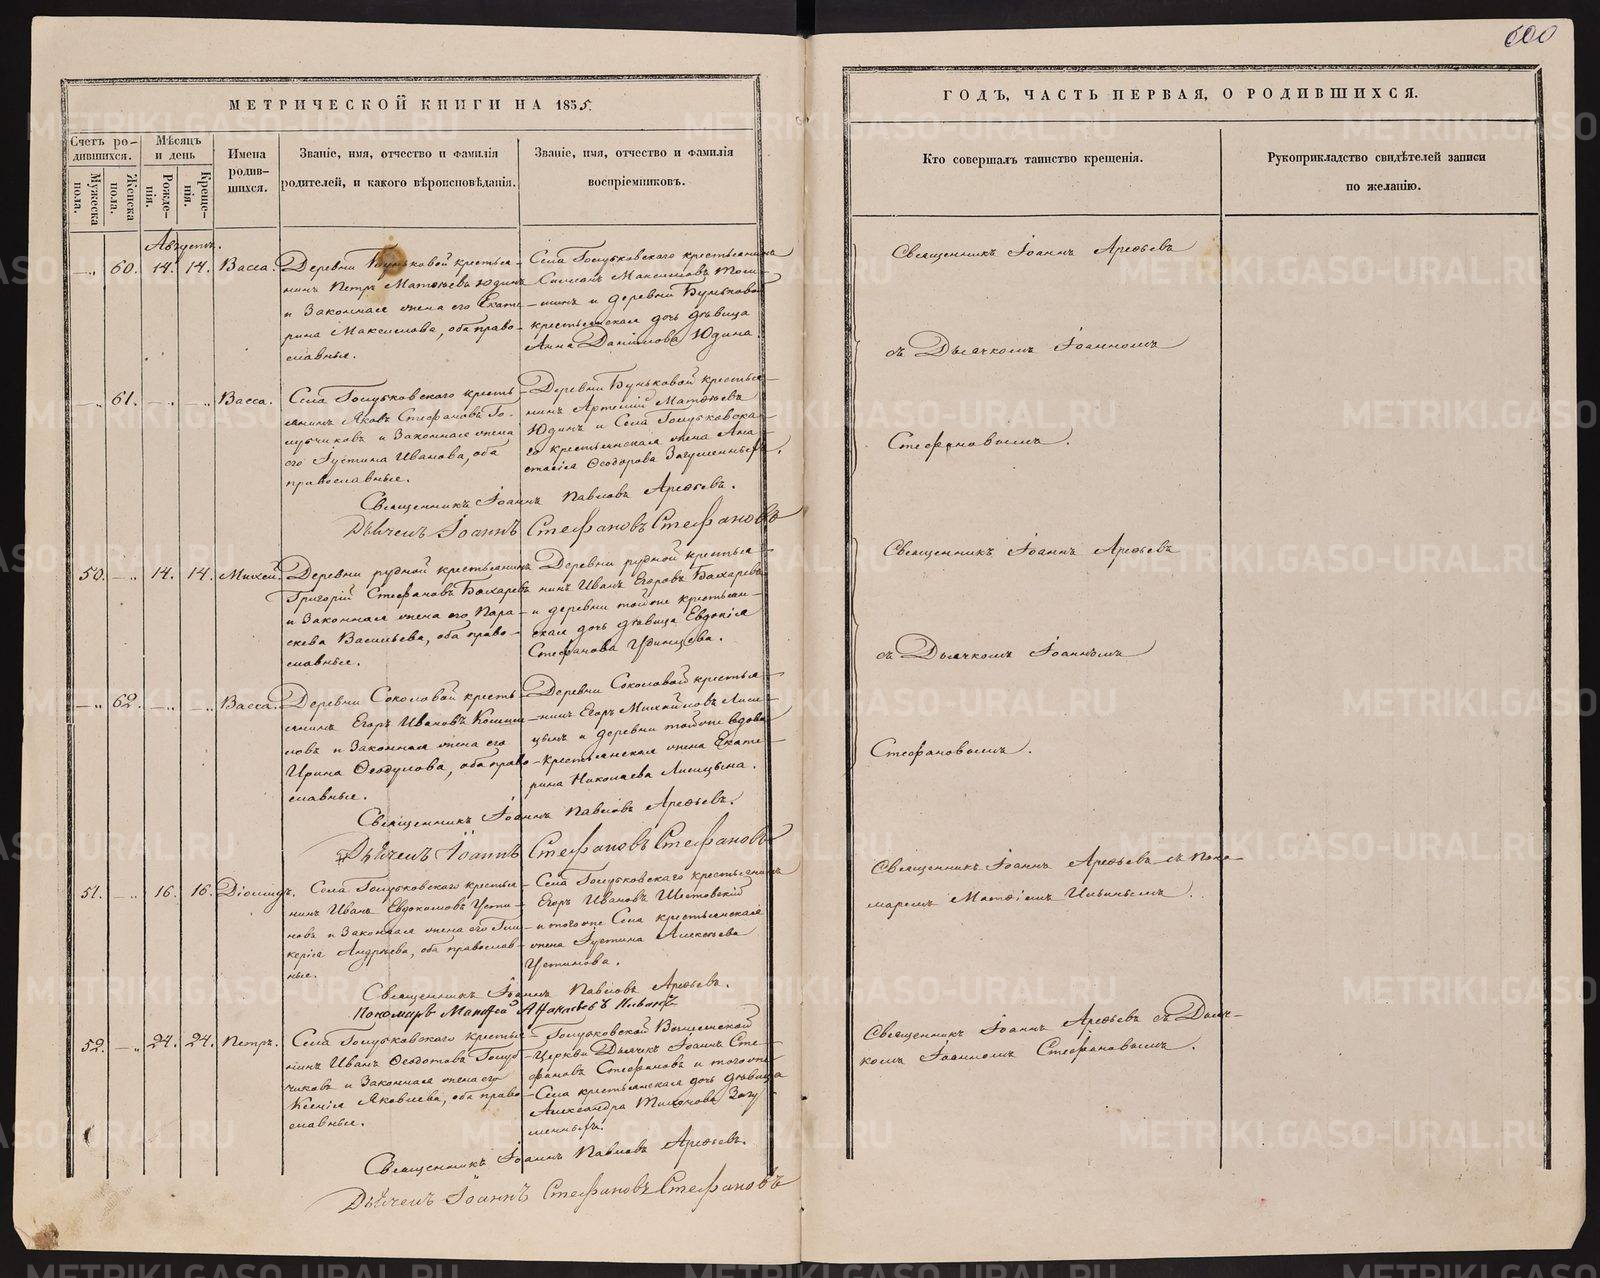 600
МЕТРИЧЕСКОЙ КНИГИ НА 1855.
ГОДЪ, ЧАСТЬ ПЕРВАЯ, О РОДИВШИХСЯ.
Счетъ ро-
дившихся.
Мужеска
пола.
Женска
пола.
Мѣсяцъ
и день
Рожде-
нія.
Креще-
нія.
Имена
родив-
шихся.
Званіе, имя, отчество и фамилія
родителей, и какого вѣроисповѣданія.
Званіе, имя, отчество и фамилія
воспріемниковъ.
Кто совершалъ таинство крещенія.
Рукоприкладство свидѣтелей записи
по желанію.
Августъ.
—„ 60. 14. 14. Васса.
Деревни Буньковой крестья-
нинъ Петръ Матѳѣевъ Юдинъ
и Законная жена его Екате-
рина Максимова, оба право-
славные.
Села Голубковскаго крестьянинъ
Максимовъ
и деревни Буньковой
крестьянская дочь дѣвица
Анна Даніилова Юдина.
Священникъ Іоаннъ Арефьевъ
съ Дьячкомъ Іоанномъ
Стефановымъ.
—„ 61. —„ —„ Васса.
Села Голубковскаго кресть-
янинъ Яковъ Стефановъ Го-
лубчиковъ и Законная жена
его Іустина Иванова, оба
православные.
Деревни Буньковой крестья-
нинъ Артемій Матѳѣевъ
Юдинъ и Села Голубковска-
го крестьянская жена Ана-
стасія Ѳеодорова Загуменныхъ.
Священникъ Іоаннъ Павловъ Арефьевъ.
Дьячекъ Іоаннъ Стефановъ Стефановъ
50. —„ 14. 14. Михей.
Деревни рудной крестьянинъ
Григорій Стефановъ Бахаревъ
и Законная жена его Пара-
скева Васильева, оба право-
славные.
Деревни рудной крестья-
нинъ Иванъ Егоровъ Бахаревъ
и деревни тойже крестьян-
ская дочь дѣвица Евдокія
Стефанова Удинцева.
Священникъ Іоаннъ Арефьевъ
съ Дьячкомъ Іоанномъ
Стефановымъ.
—„ 62. —„ —„ Васса.
Деревни Соколовой кресть-
янинъ Егоръ Ивановъ
и Законная жена его
Ирина Ѳеодулова, оба право-
славные.
Деревни Соколовой крестья-
нинъ Егоръ Михайловъ Лиси-
цынъ и деревни тойже вдова
крестьянская жена Екате-
рина Николаева Лисицына.
Священникъ Іоаннъ Павловъ Арефьевъ.
Дьячекъ Іоаннъ Стефановъ Стефановъ
51. —„ 16. 16. Діомидъ.
Села Голубковскаго крестья-
нинъ Иванъ Евдокимовъ Усти-
новъ и Законная жена его Гли-
керія Андреева, оба православ-
ные.
Села Голубковскаго крестьянинъ
Егоръ Ивановъ Шестовскій
и тогоже Села крестьянская
жена Іустина Алексѣева
Устинова.
Священникъ Іоаннъ Арефьевъ съ Поно-
маремъ Матѳіемъ Ильинымъ.
Священникъ Іоаннъ Павловъ Арефьевъ.
Пономарь Матѳей Ильинъ
52. —„ 24. 24. Петръ.
Села Голубковскаго крестья-
нинъ Иванъ Ѳеодотовъ Голуб-
чиковъ и Законная жена его
Ксенія Яковлева, оба право-
славные.
Голубковской Вознесенской
Церкви Дьячекъ Іоаннъ Сте-
фановъ Стефановъ и тогоже
Села крестьянская дочь дѣвица
Александра Тихонова Загу-
менныхъ.
Священникъ Іоаннъ Арефьевъ съ Дьяч-
комъ Іоанномъ Стефановымъ.
Священникъ Іоаннъ Павловъ Арефьевъ.
Дьячекъ Іоаннъ Стефановъ Стефановъ
METRIKI.GASO-URAL.RU